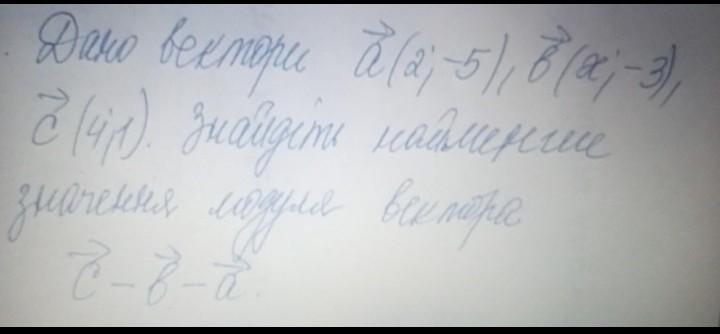 Дано вектори a⃗(2; -5), b⃗(x; -3),
c⃗(4; 1). Знайдіть найменше
значення модуля вектора
c⃗ - b⃗ - a⃗.